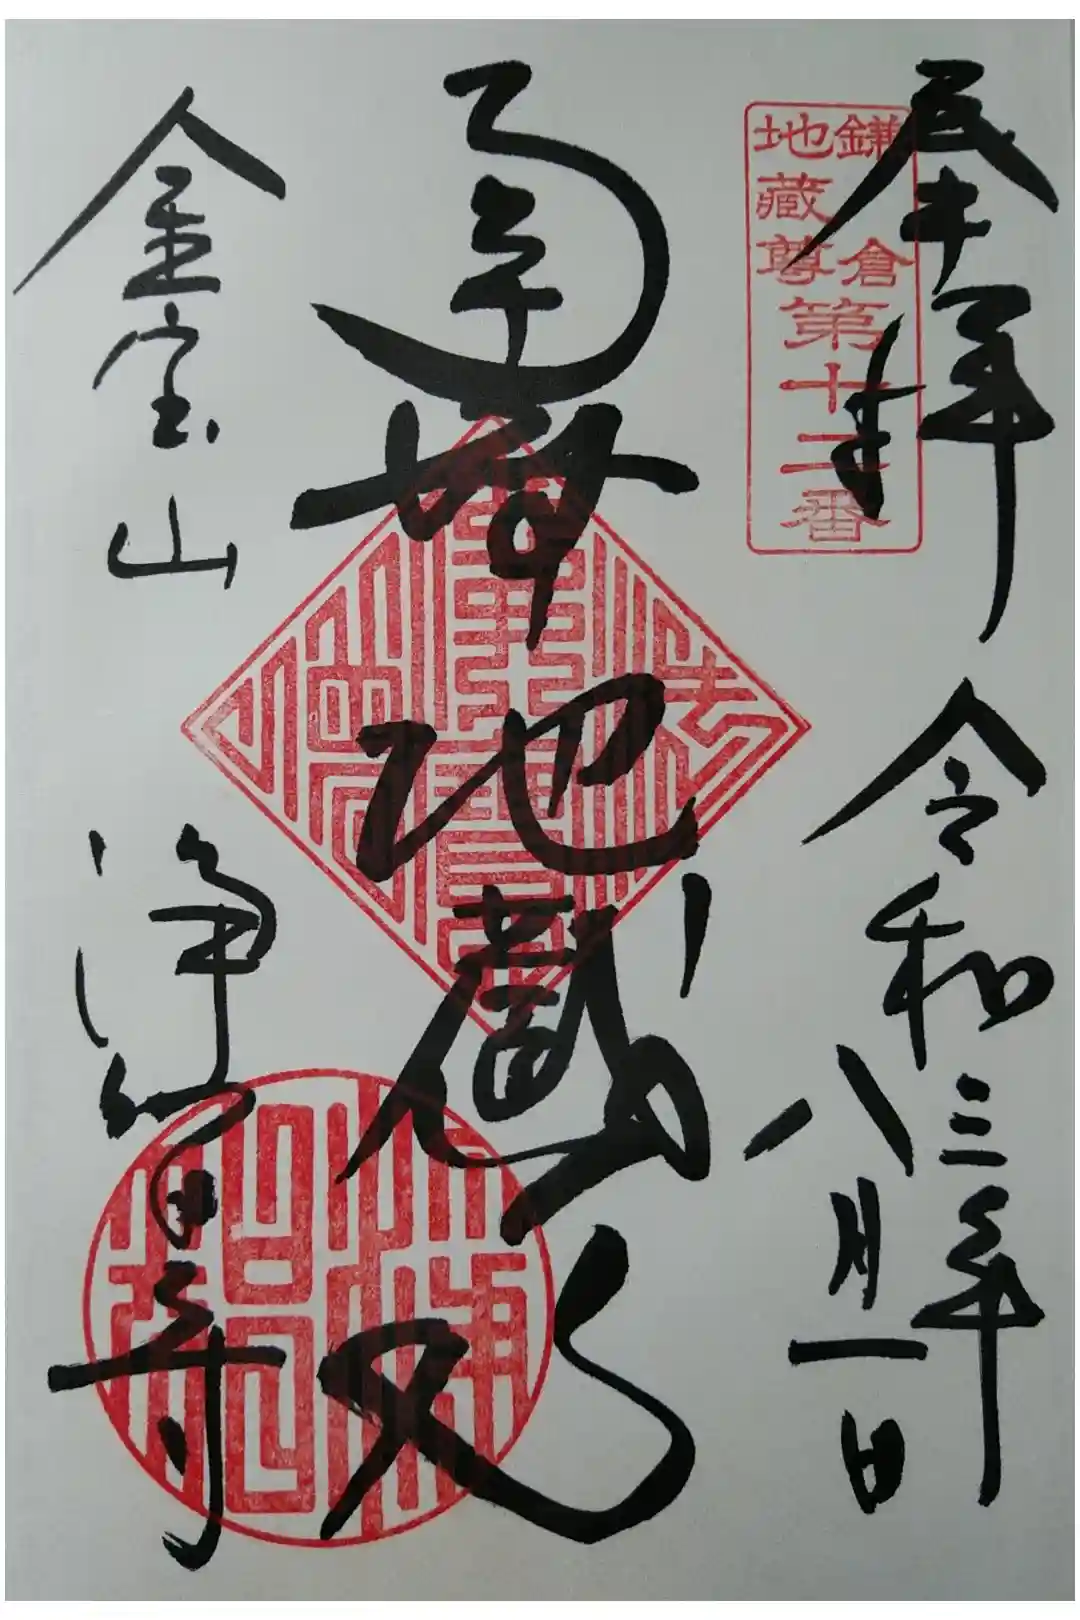 奉拝
鎌倉
地蔵尊
第十二番
令和三年
八月一日
南無地蔵
金宝山
浄智寺